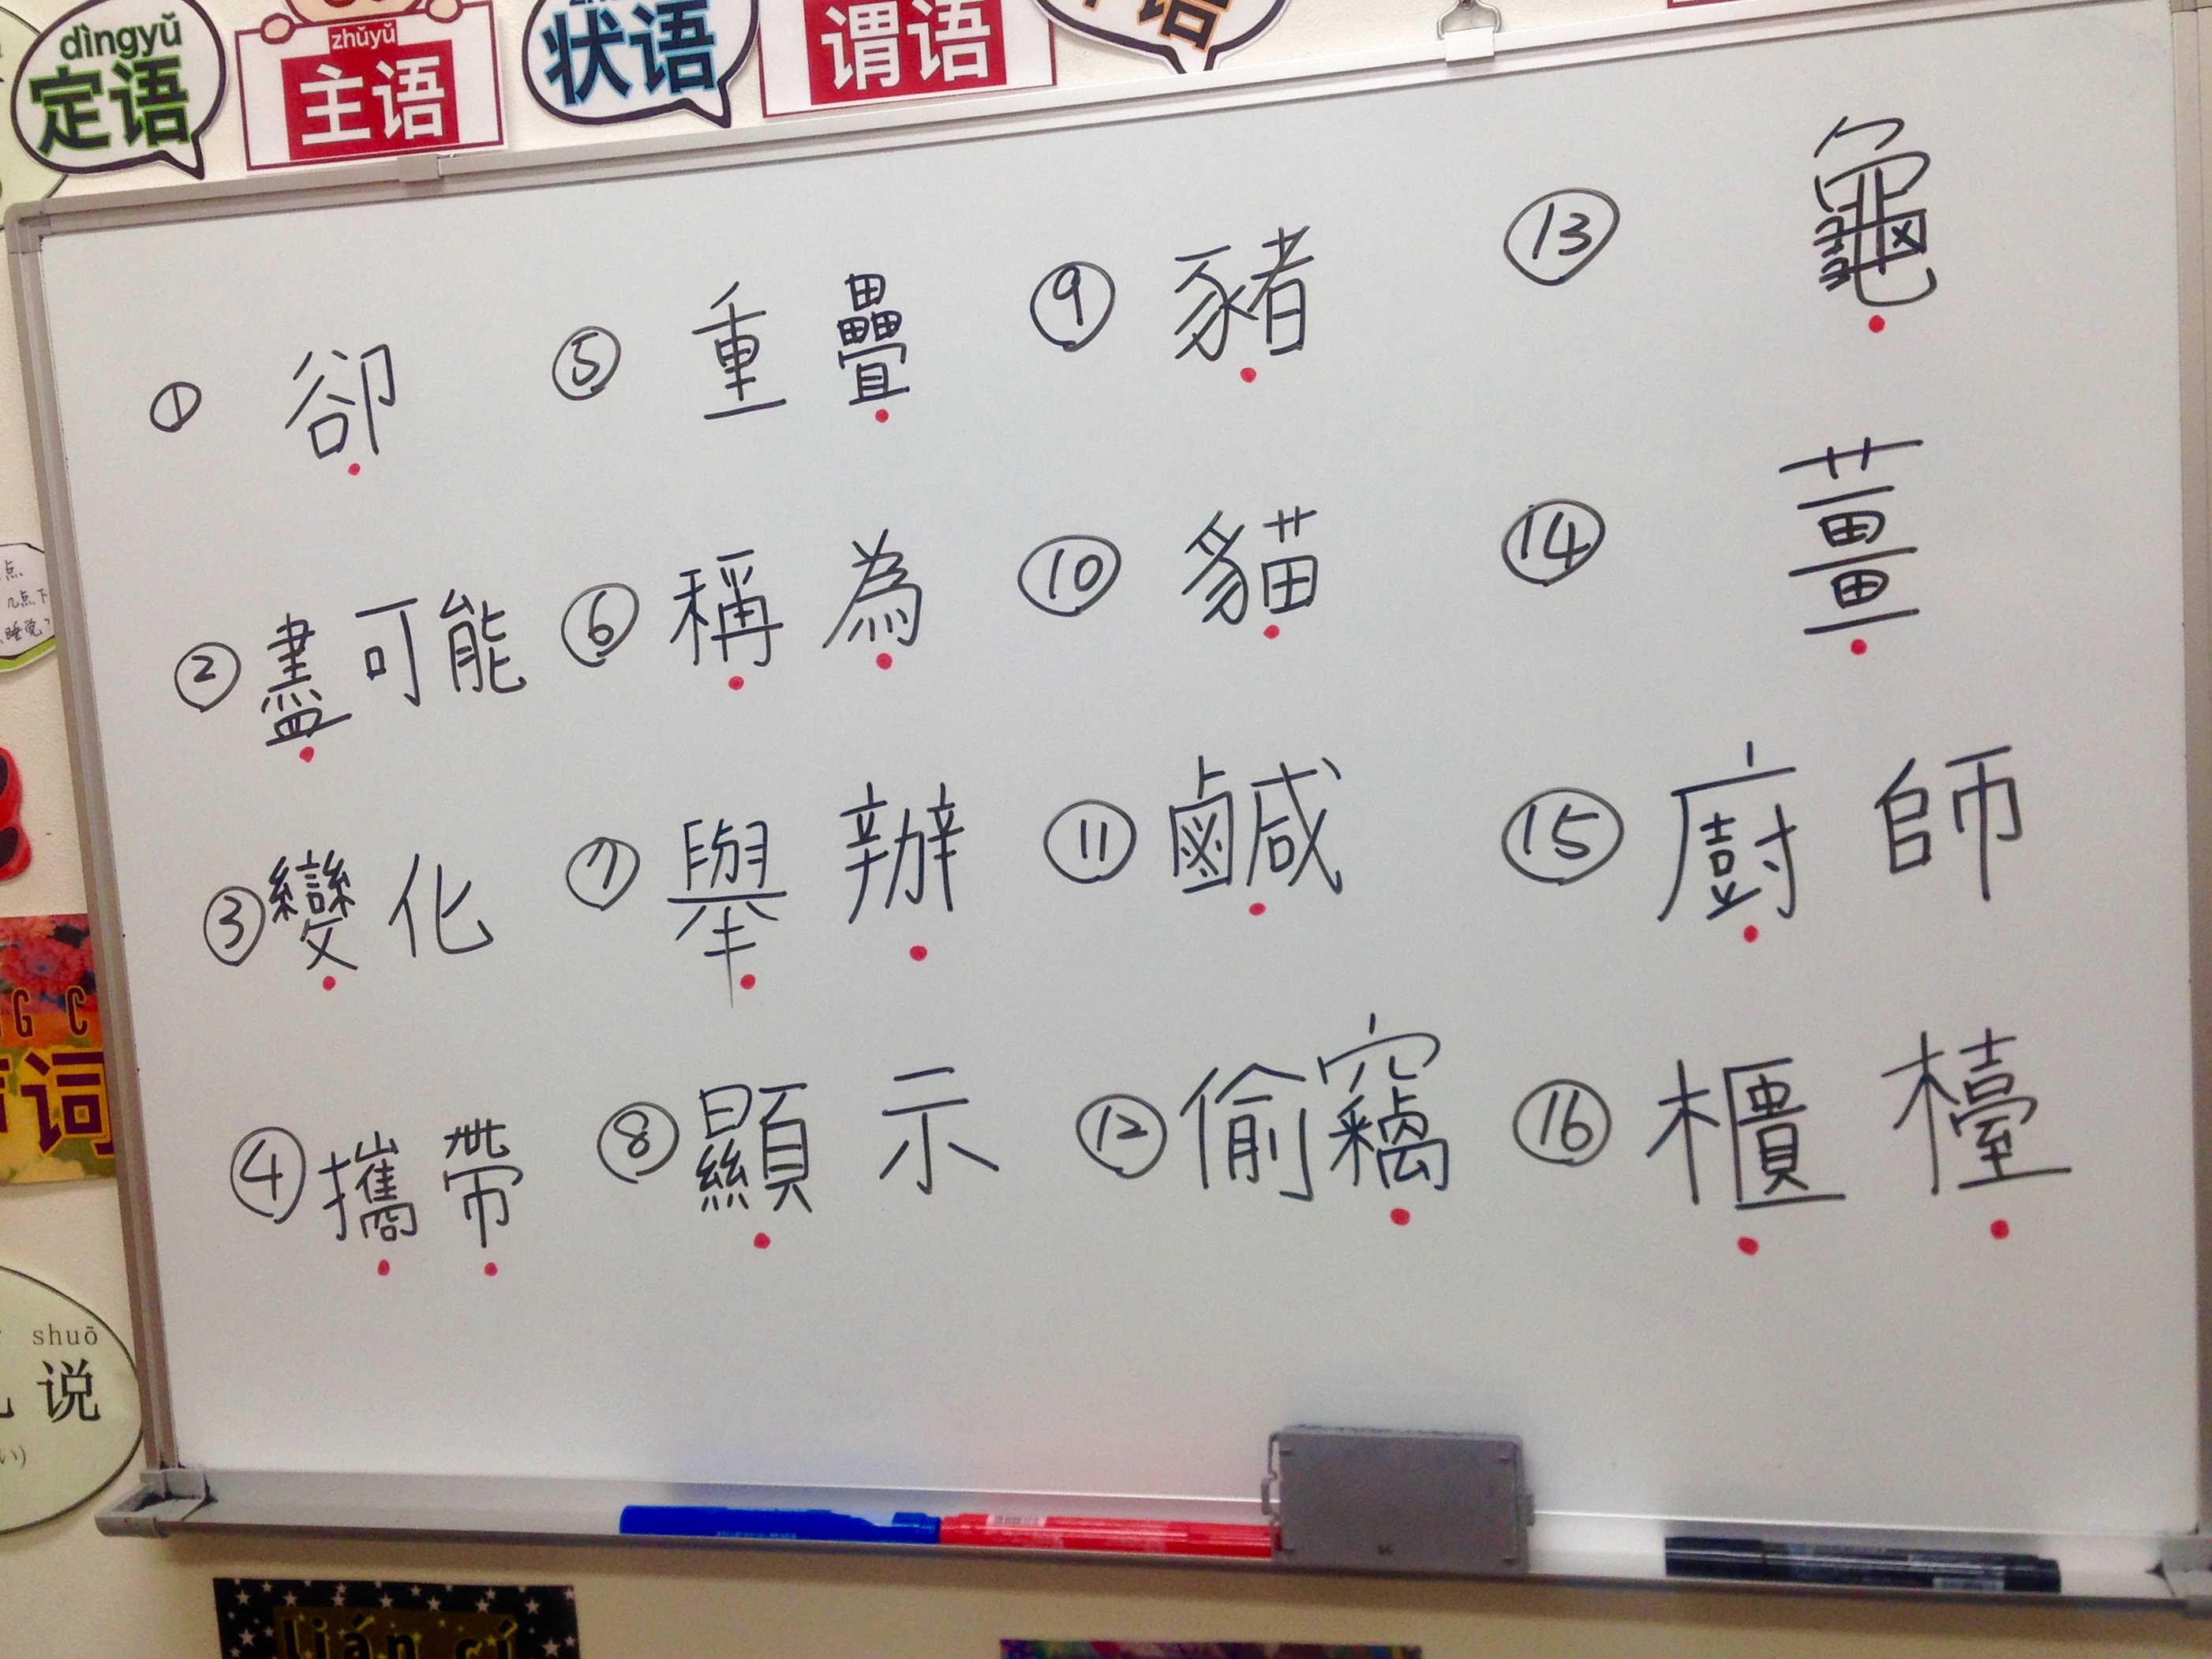 dìngyǔ
定语
zhǔyǔ
主语
状语
谓语
语
① 卻
② 盡可能
③ 變化
④ 攜帶
⑤ 重疊
⑥ 稱為
⑦ 舉辦
⑧ 顯示
⑨ 豬
⑩ 貓
⑪ 鹹
⑫ 偷竊
⑬ 龜
⑭ 薑
⑮ 廚師
⑯ 櫃檯
点
几点下
睡觉?
G C
词
shuō
说
い)
lián cí